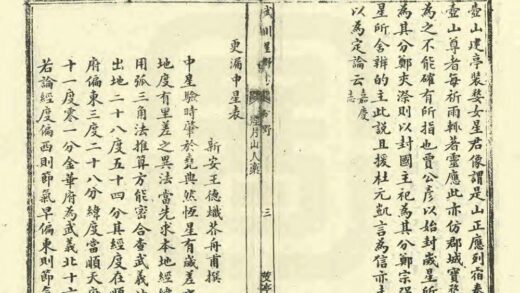 壺山建亭裝婺女星君像謂是山正應列宿
壺山尊者每祈雨輒著靈應此亦仿郡城寶婺
為之不能確有所指也賈公彥以始封歲星所
為其分鄭夾漈則以封國主祀為其分鄭宗
星所舍辨的主此說且援杜元凱言為信亦
以為定論云嘉慶志
武川星野
三
更漏中星表
新安王德瓛芥舟甫撰
中星驗時肇於堯典然恆星有歲差
地度有里差之異法當先求本地經
用弧三角法推算方能密合查武義
出地二十八度五十四分其經度在順
府偏東三度二十八分緯度當順天
十一度零一分金華府為武義北十
若論經度偏西則節氣早偏東則節氣